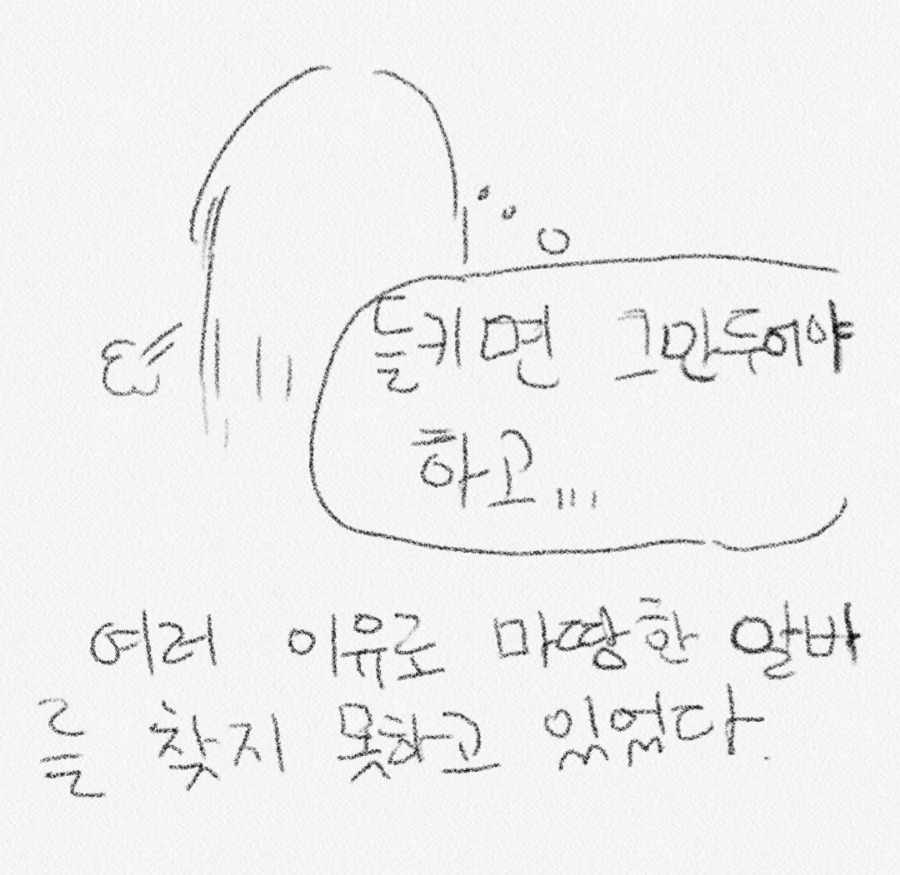 들키면 그만두어야
하고...
여러 이유로 마땅한 알바
를 찾지 못하고 있었다.